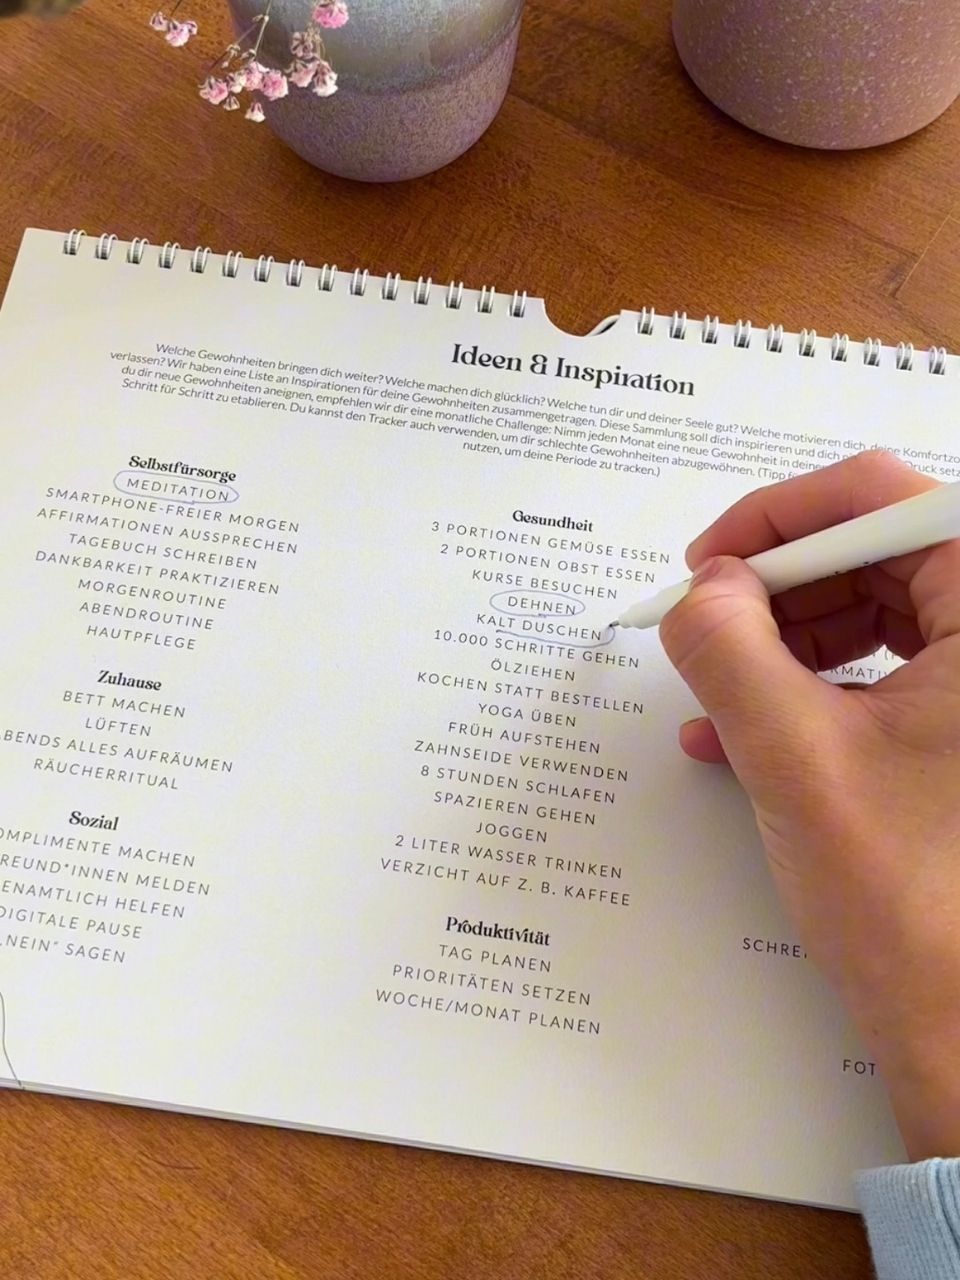 Ideen & Inspiration
Welche Gewohnheiten bringen dich weiter? Welche machen dich glücklich? Welche tun dir und deiner Seele gut? Welche motivieren dich, deine Komfortzo
verlassen? Wir haben eine Liste an Inspirationen für deine Gewohnheiten zusammengetragen. Diese Sammlung soll dich inspirieren und dich Druck setz
du dir neue Gewohnheiten aneignen, empfehlen wir dir eine monatliche Challenge: Nimm jeden Monat eine neue Gewohnheit in
Schritt für Schritt zu etablieren. Du kannst den Tracker auch verwenden, um dir schlechte Gewohnheiten abzugewöhnen. (Tipp
nutzen, um deine Periode zu tracken.)
Selbstfürsorge
MEDITATION
SMARTPHONE-FREIER MORGEN
AFFIRMATIONEN AUSSPRECHEN
TAGEBUCH SCHREIBEN
DANKBARKEIT PRAKTIZIEREN
MORGENROUTINE
ABENDROUTINE
HAUTPFLEGE
Zuhause
BETT MACHEN
LÜFTEN
BENDS ALLES AUFRÄUMEN
RÄUCHERRITUAL
Sozial
OMPLIMENTE MACHEN
REUND*INNEN MELDEN
ENAMTLICH HELFEN
DIGITALE PAUSE
„NEIN“ SAGEN
Gesundheit
3 PORTIONEN GEMÜSE ESSEN
2 PORTIONEN OBST ESSEN
KURSE BESUCHEN
DEHNEN
KALT DUSCHEN
10.000 SCHRITTE GEHEN
ÖLZIEHEN
KOCHEN STATT BESTELLEN
YOGA ÜBEN
FRÜH AUFSTEHEN
ZAHNSEIDE VERWENDEN
8 STUNDEN SCHLAFEN
SPAZIEREN GEHEN
JOGGEN
2 LITER WASSER TRINKEN
VERZICHT AUF Z. B. KAFFEE
Produktivität
TAG PLANEN
PRIORITÄTEN SETZEN
WOCHE/MONAT PLANEN
RMATIV
SCHREI
FOT